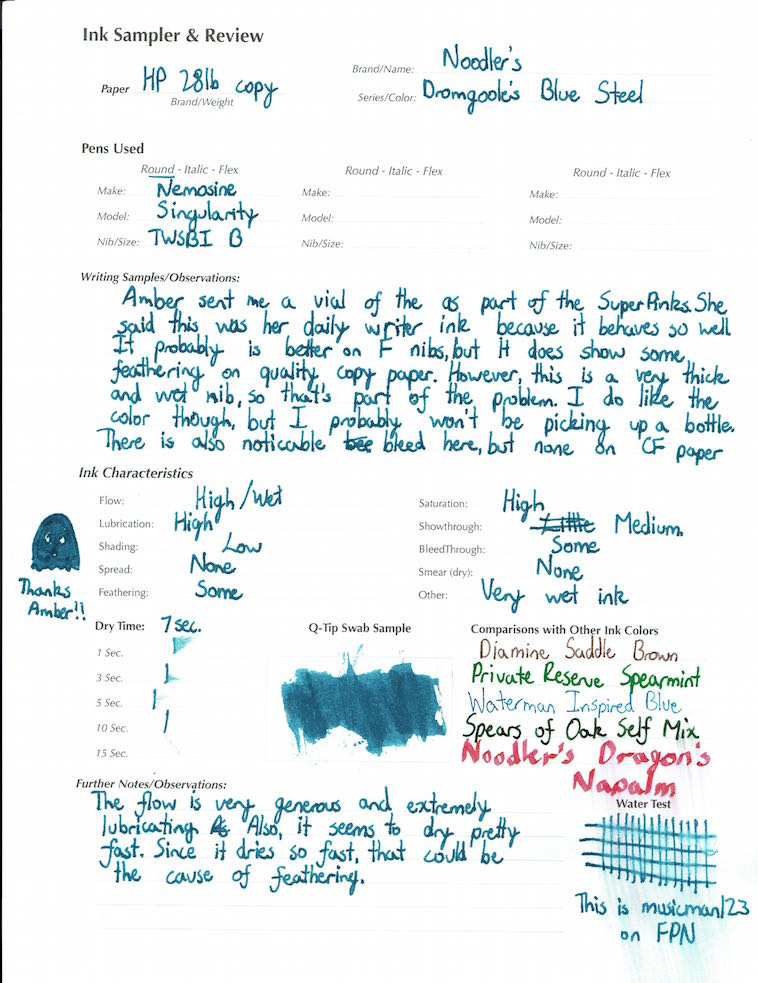 Ink Sampler & Review
Paper HP 28lb copy
Brand/Weight
Brand/Name: Noodler's
Series/Color: Dromgoole's Blue Steel
Pens Used
Round - Italic - Flex
Make: Nemosine
Model: Singularity
Nib/Size: TWSBI B
Round - Italic - Flex
Make:
Model:
Nib/Size:
Round - Italic - Flex
Make:
Model:
Nib/Size:
Writing Samples/Observations:
Amber sent me a vial of the as part of the SuperPinks. She
said this was her daily writer ink because it behaves so well
It probably is better on F nibs, but it does show some
feathering on quality copy paper. However, this is a very thick
and wet nib, so that's part of the problem. I do like the
color though, but I probably won't be picking up a bottle.
There is also noticable bee bleed here, but none on CF paper
Ink Characteristics
Flow: High/Wet
Lubrication: High
Shading: Low
Spread: None
Feathering: Some
Saturation: High
Showthrough: Little Medium.
BleedThrough: Some
Smear (dry): None
Other: Very wet ink
Thanks
Amber!!
Dry Time: 7 sec.
1 Sec.
3 Sec.
5 Sec.
10 Sec.
15 Sec.
Q-Tip Swab Sample
Comparisons with Other Ink Colors
Diamine Saddle Brown
Private Reserve Spearmint
Waterman Inspired Blue
Spears of Oak Self Mix
Noodler's Dragon's
Napalm
Further Notes/Observations:
The flow is very generous and extremely
lubricating As Also, it seems to dry pretty
fast. Since it dries so fast, that could be
the cause of feathering.
Water Test
This is musicman123
on FPN